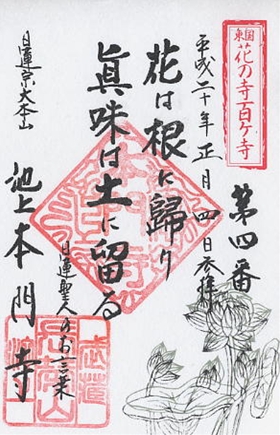 東国
花の寺百ケ寺
第四番
平成二十年正月四日参拝
花は根に歸り
眞味は土に留る
日蓮聖人のお言葉
日蓮宗大本山
池上本門寺